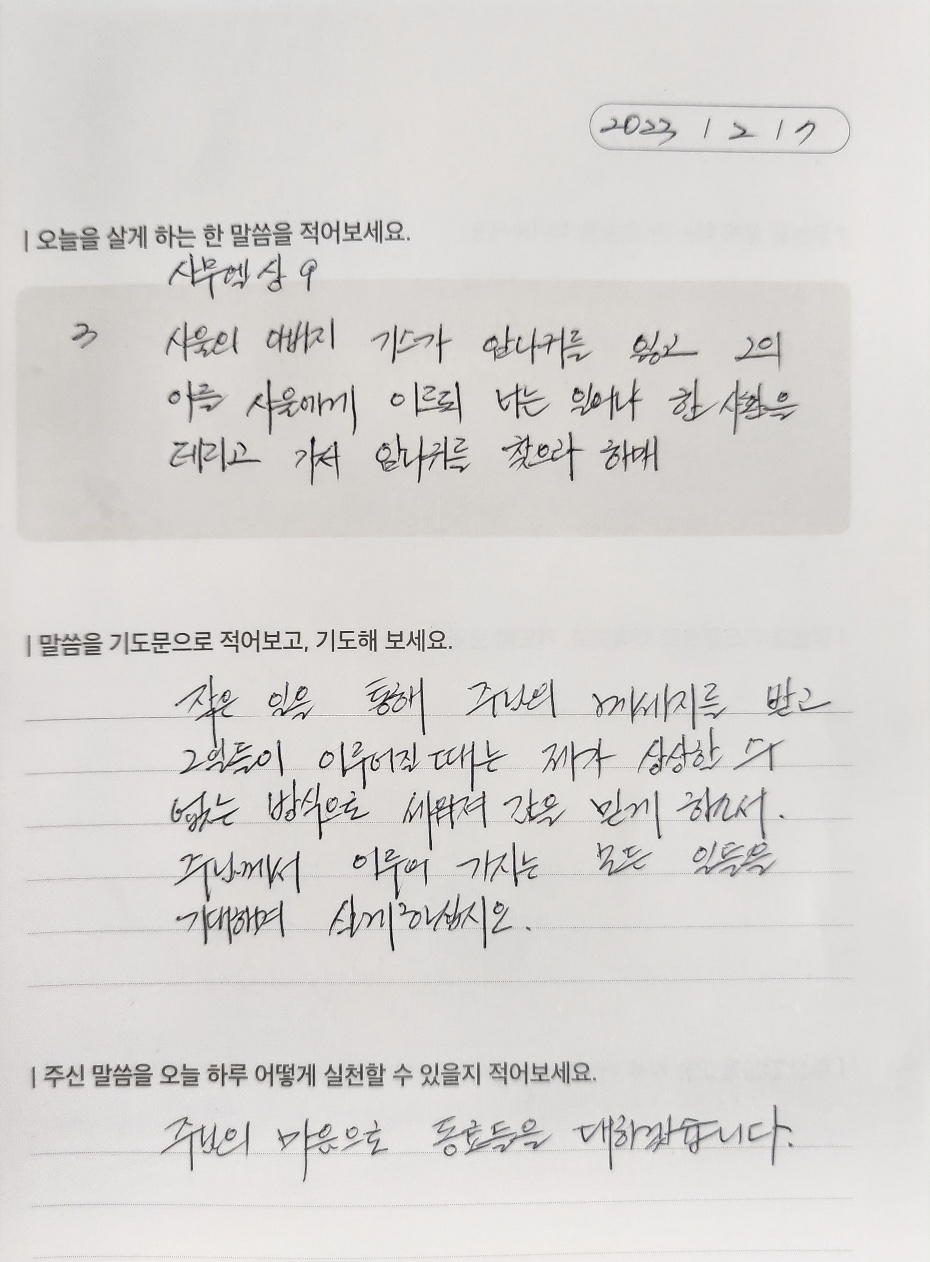 2023 12 17
| 오늘을 살게 하는 한 말씀을 적어보세요.
사무엘상 9
3 사울의 아버지 기스가 암나귀를 잃고 그의
아들 사울에게 이르되 너는 일어나 한 사환을
데리고 가서 암나귀를 찾으라 하매
| 말씀을 기도문으로 적어보고, 기도해 보세요.
작은 일을 통해 주님의 메세지를 받고
그일들이 이루어질 때는 제가 상상할 수
없는 방식으로 세워져 감을 믿게 하소서.
주님께서 이루어 가시는 모든 일들을
기대하며 살게 하십시오.
| 주신 말씀을 오늘 하루 어떻게 실천할 수 있을지 적어보세요.
주님의 마음으로 동료들을 대하겠습니다.